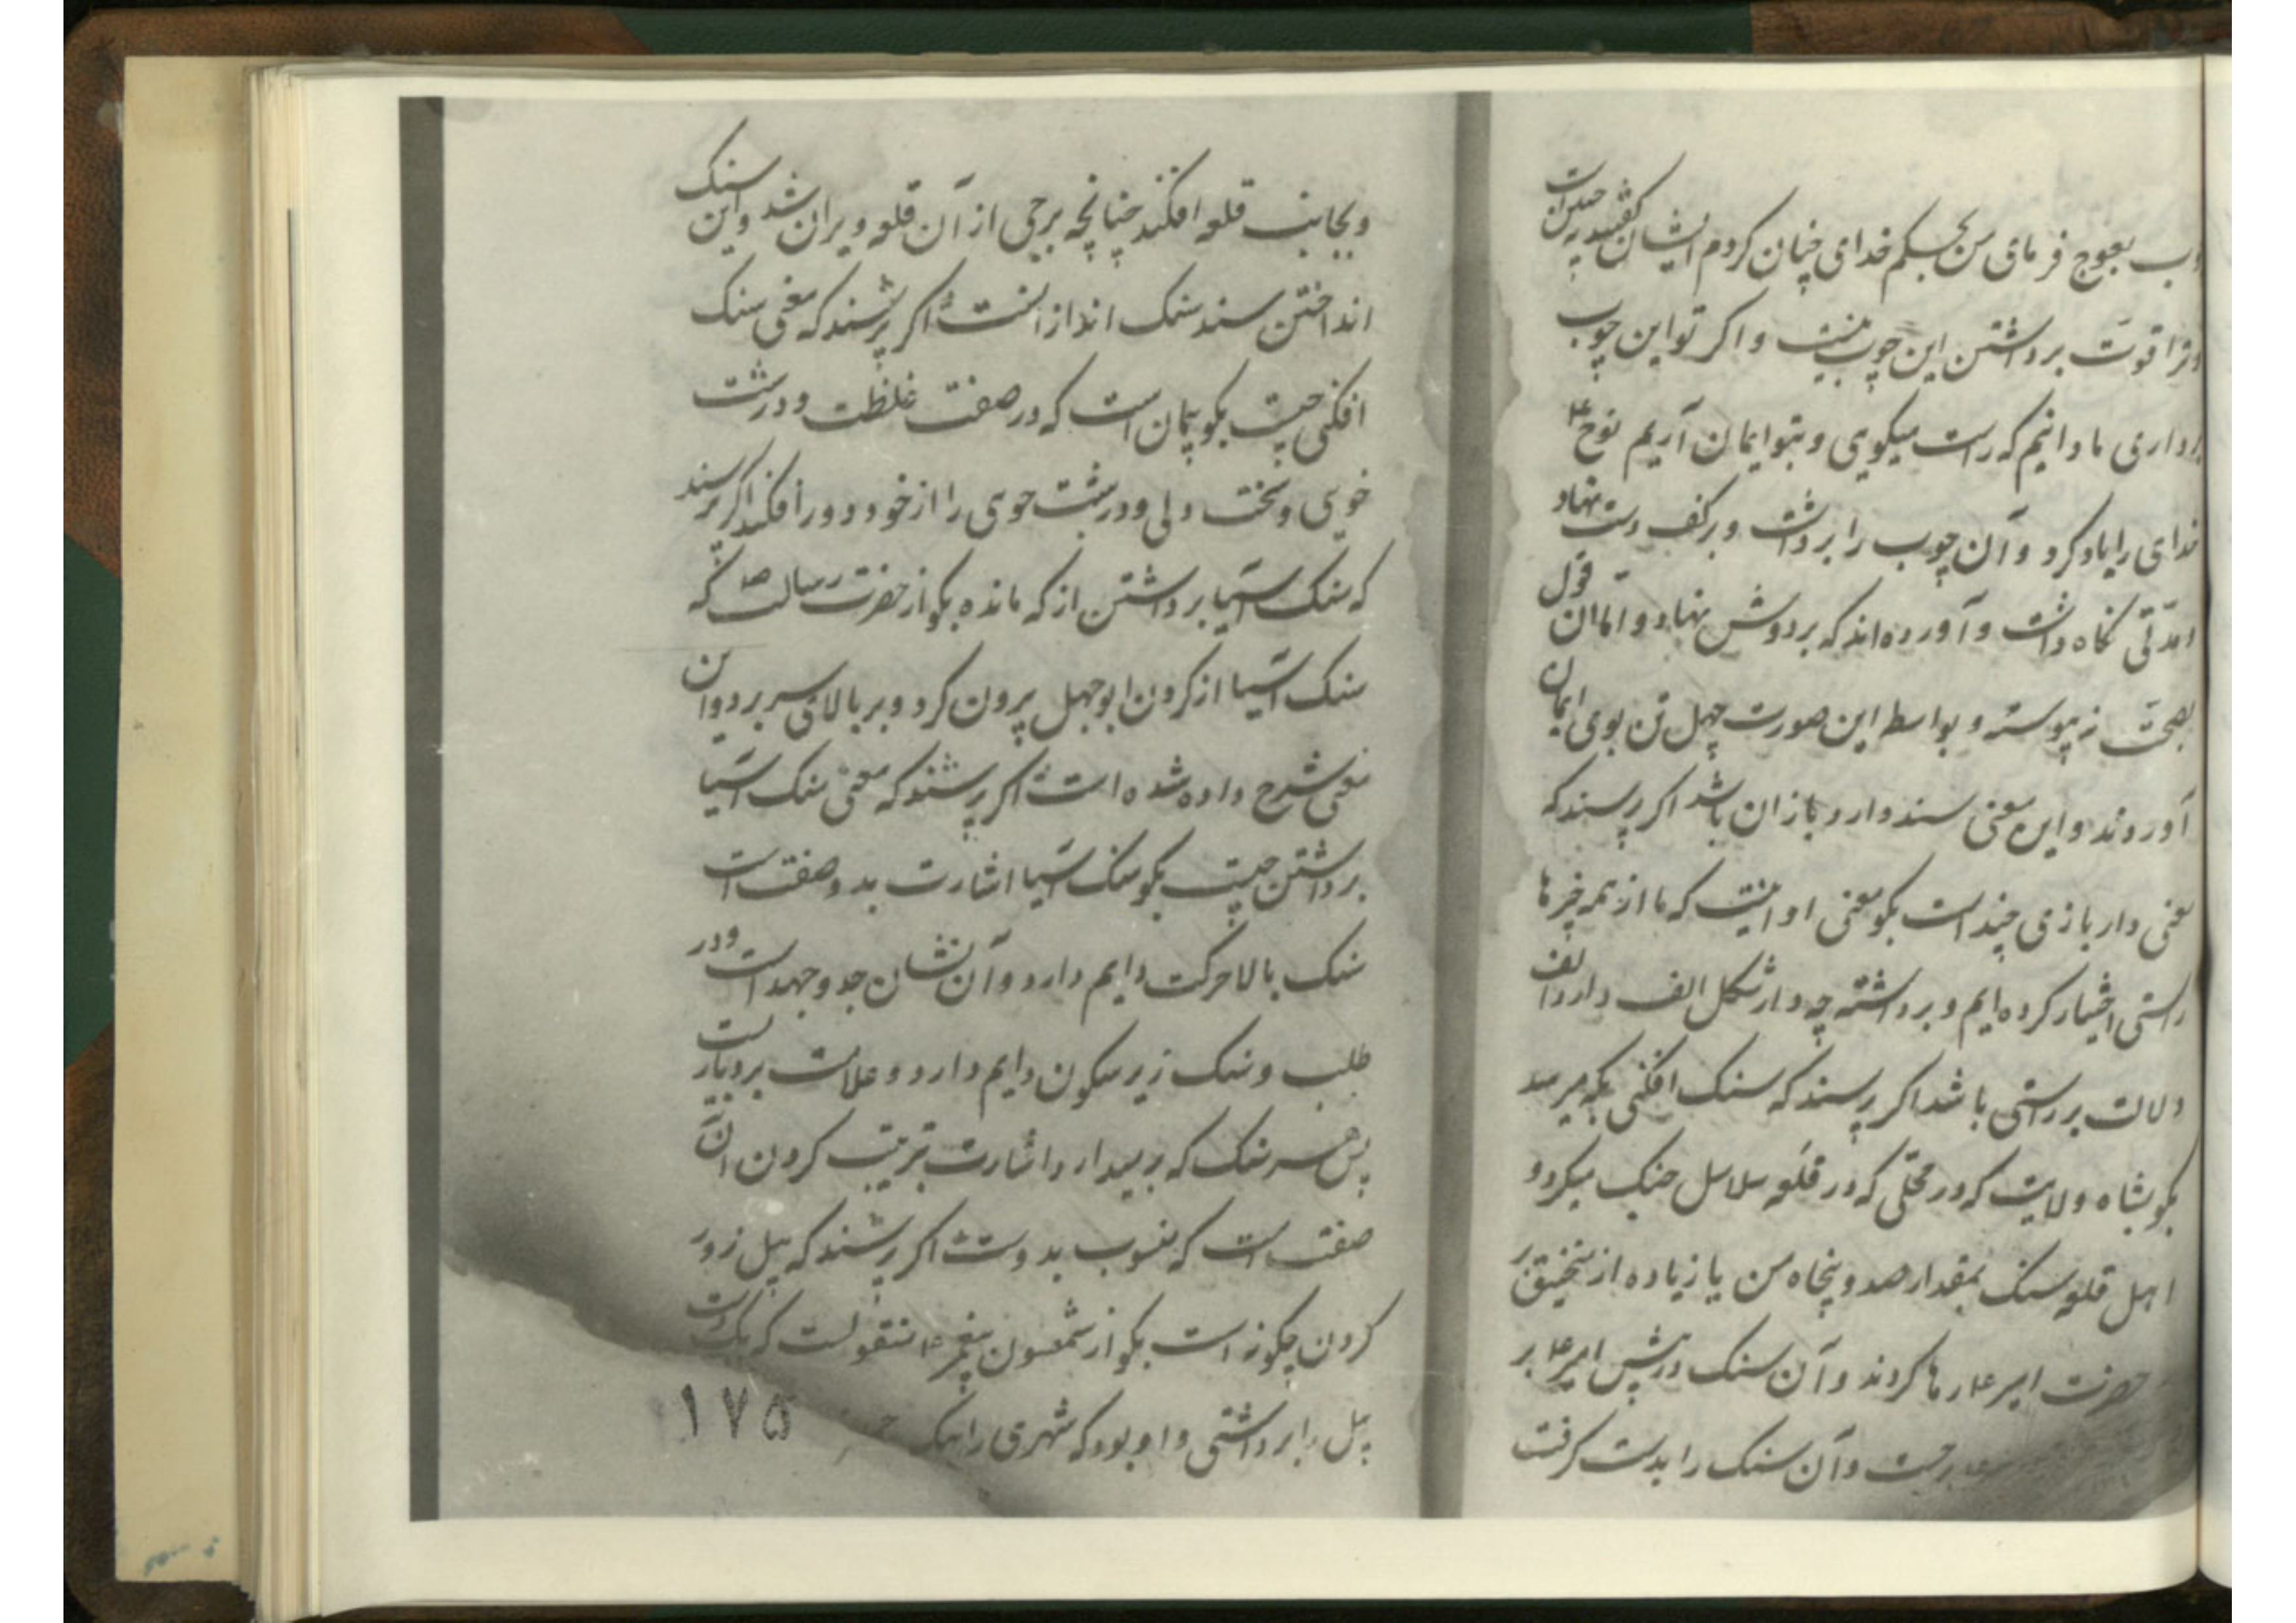 بعوج فرمای من بحکم خدای چنان کردم ایشان گفتند به چندین
قوت برداشتن این چوب نیست و اگر تو این چوب
برداری ما دانیم که راست میکویی و بتو ایمان آریم نوح ع
خدای را یاد کرد و آن چوب را برداشت و بر کف دست نهاد
مدتی نگاه داشت و آورده‌اند که بر دوش نهاد و اما آن قول
بصحت نه پیوسته و بواسطه این صورت چهل تن بوی ایمان
آوردند و این معنی سند دار و باز آن باشد اکر پرسند که
معنی دار بازی چند است بکو معنی او اینست که ما از همه چیزها
راستی اختیار کرده‌ایم و برداشته چه دار شکل الف دارد و الف
دلالت بر راستی باشد اکر پرسند که سنک افکنی بکه میرسد
بکو بشاه ولایت که در محلی که در قلعه سلاسل جنک میکرد و
اهل قلعه سنک بمقدار صد و پنجاه من یا زیاده از منجنیق بر
حضرت امیر ع رها کردند و آن سنک در پیش امیر ع بر
جست و آن سنک را بدست کرفت
و بجانب قلعه افکند چنانچه برجی از آن قلعه ویران شد و این سنک
انداختن سند سنک اندازانست اکر پرسند که معنی سنک
افکنی چیست بکو پیمان است که در صفت غلظت و درشت
خویی و سخت دلی و درشت خوی را از خود دور افکند اکر پرسند
که سنک آسیا برداشتن از که مانده بکو از حضرت رسالت ص که
سنک آسیا از کردن ابوجهل بیرون کرد و بر بالای سر برد و آن
معنی شرح داده شده است اکر پرسند که معنی سنک آسیا
برداشتن چیست بکو سنک آسیا اشارت بدو صفت است
سنک بالا حرکت دایم دارد و آن نشان جد و جهد است در
طلب و سنک زیر سکون دایم دارد و علامت بردباریست
پس هر سنک که بر میدارد اشارت بترتیب کردن آن
صفت است که منسوب بدوست اکر پرسند که پیل زور
کردن چکونه است بکو از شمعون پیغمبر ع منقولست که یک دست
پیل را برداشتی و او بود که شهری را بیک
۱۷۵